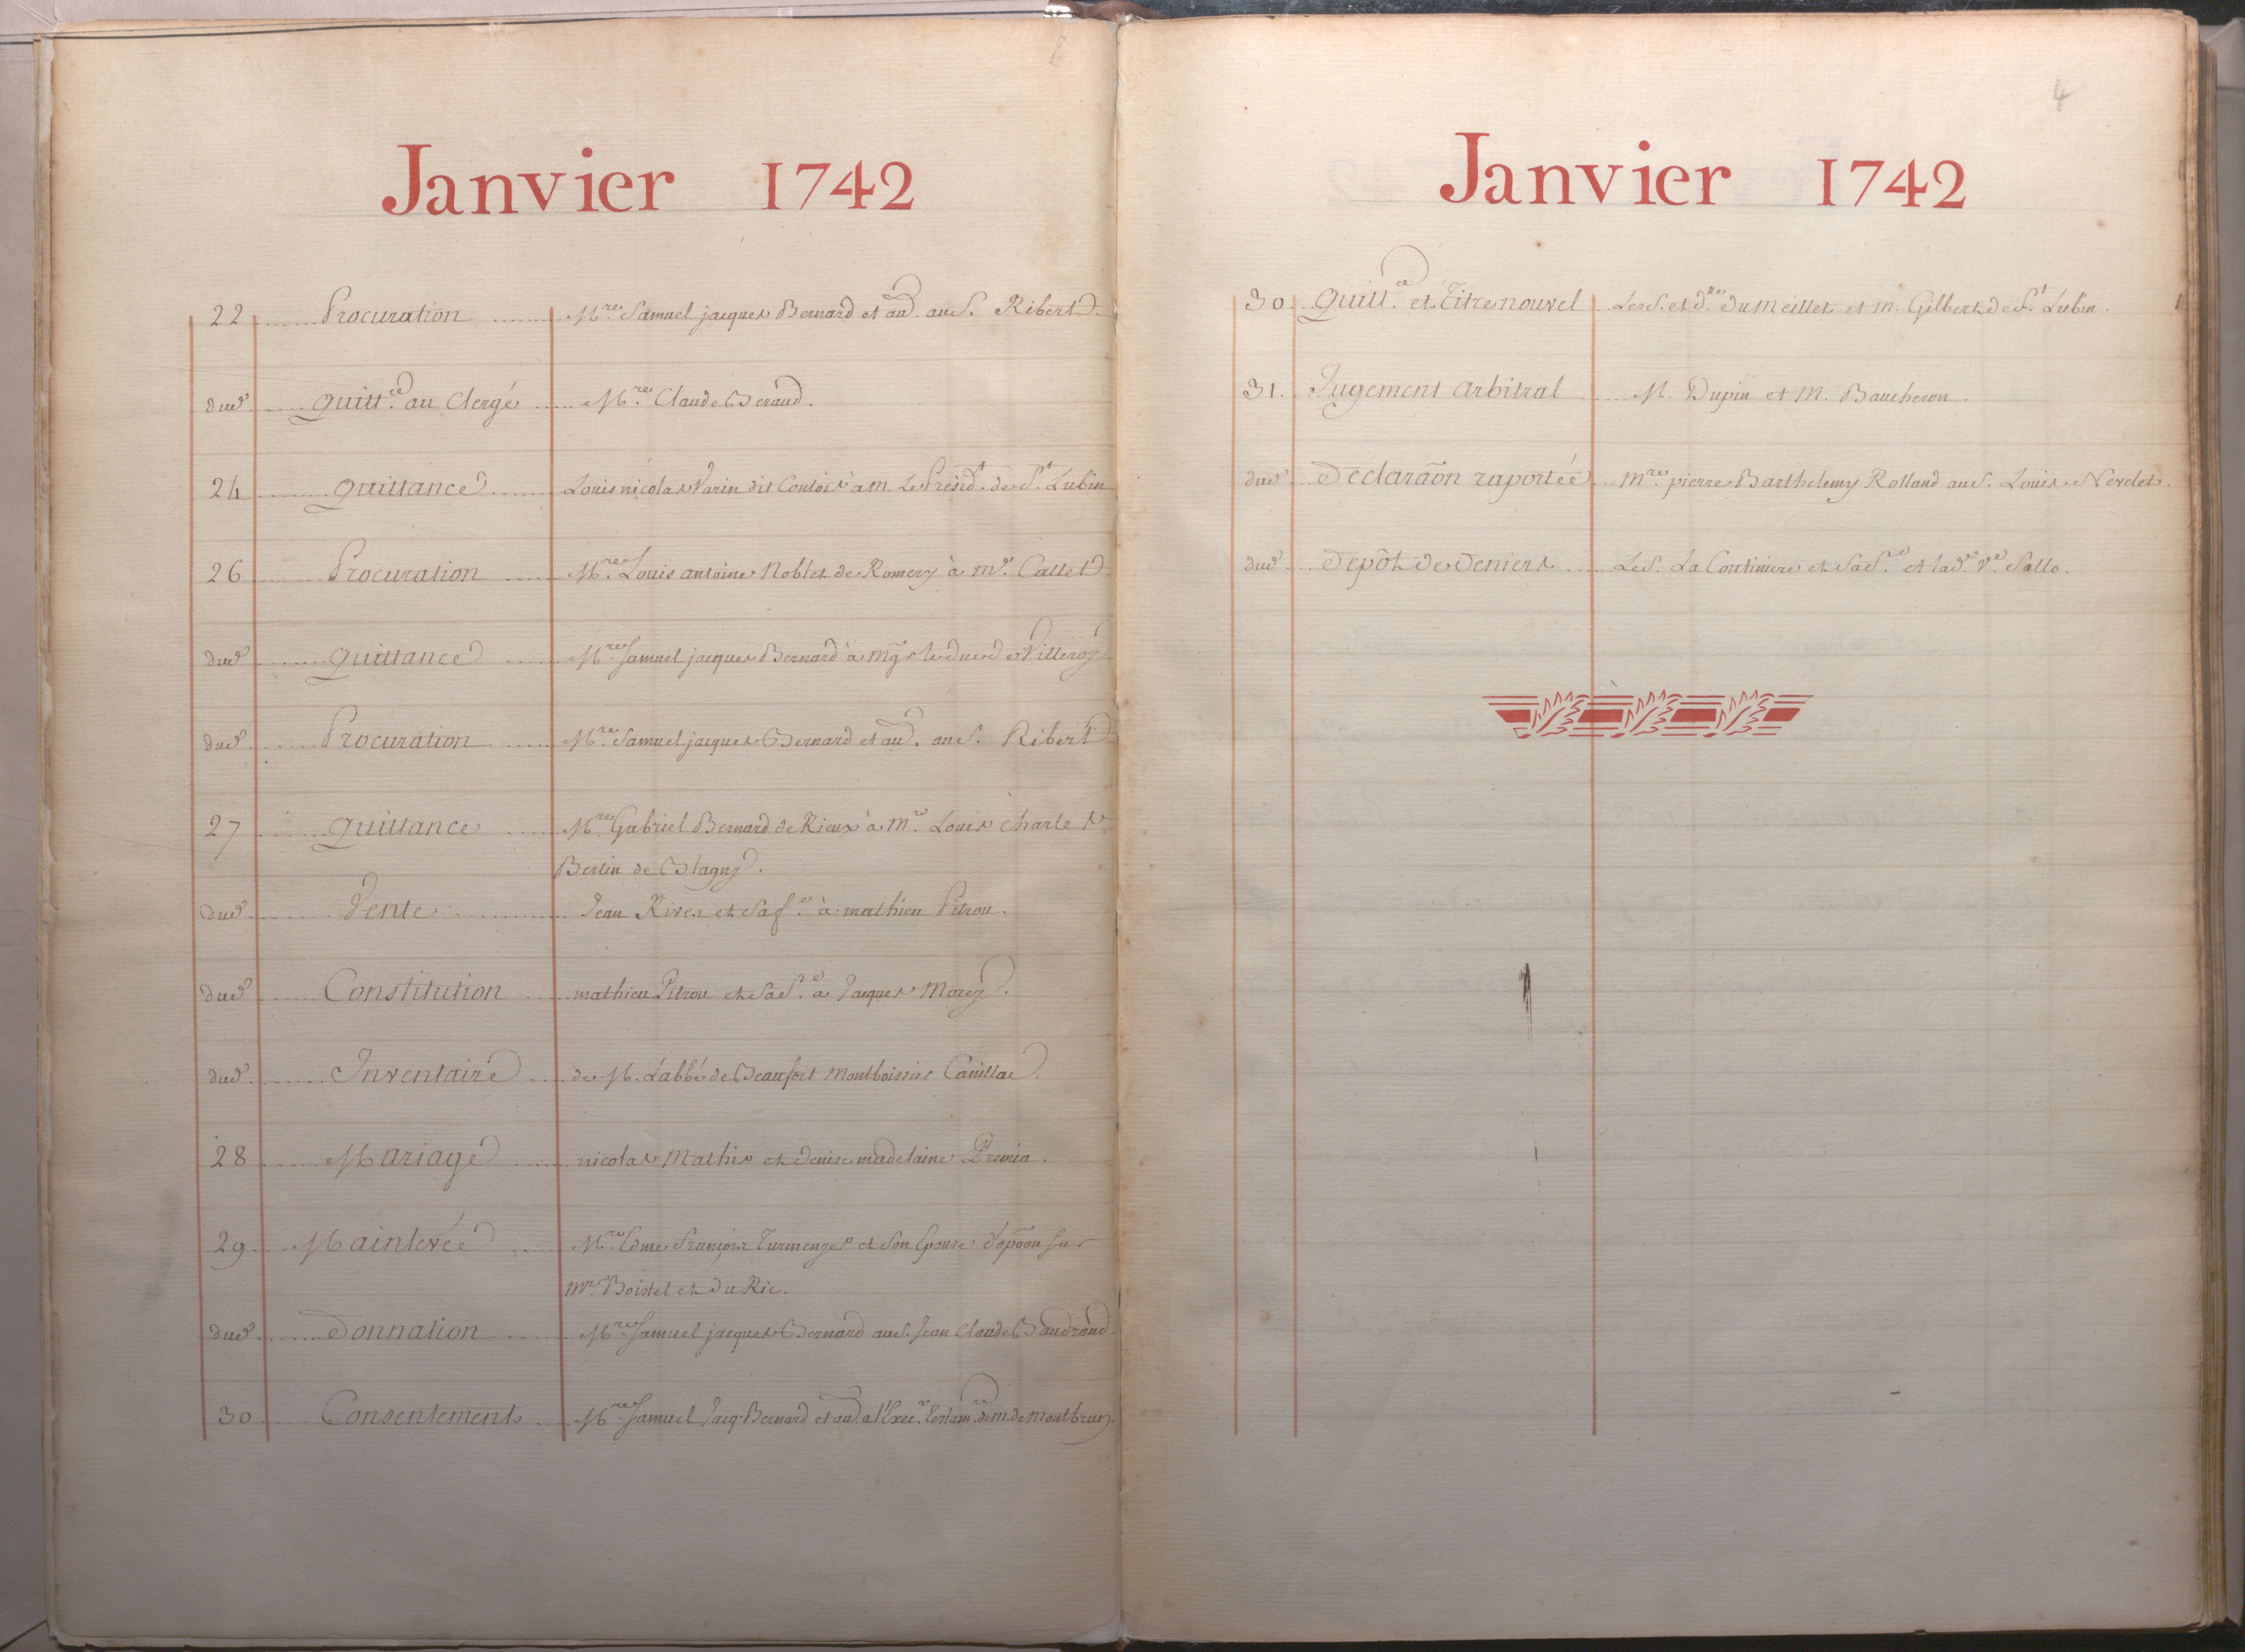 Janvier 1742
22 Procuration Mre. Samuel jacques Bernard et au. au S. Ribert
dud. Quittce. au Clergé Mre. Claude Beraud.
24 Quittance Louis nicolas Varin dit Contois à m. Le Présidt. de St. Lubin
26 Procuration Mre. Louis antoine Noblet de Romery à me. Callet
dud. Quittance Mre. Samuel jacques Bernard à mgr le duc de Villeroy
dud. Procuration Mre. Samuel jacques Bernard et au. au S. Ribert
27 Quittance Mre. Gabriel Bernard de Rieux à mre. Louis Charles
Bertin de Blagny.
dud. Vente Jean Rives et sa fe. à mathieu Pitrou.
dud. Constitution mathieu Pitrou et sa fe. à Jacques Morey.
dud. Inventaire de M. L'abbé de Beaufort Montboissier Canillac.
28 Mariage nicolas Mathis et denise madelaine Premia.
29 Mainlevée Mre. Edme François Turmenyes et son Epouse d'opõon sur
mre. Boistel et du Ric.
dud. Donnation Mre. Samuel jacques Bernard au S. Jean Claude Baudrand.
30 Consentement Mre. Samuel Jacq. Bernard et au. a l'Exec. testam. de m. de Montbrun.
4
Janvier 1742
30. Quittce. et Titre nouvel Les S. et dlles. du Meillet et m. Gilbert de St. Lubin.
31. Jugement arbitral M. Dupin et M. Baucheron.
dud. Declaraõn raportée mre. pierre Barthelemy Rolland au S. Louis Nevelet.
dud. Depôt de Deniers Le S. La Coutiniere et sa fe. et la de. Ve. Sallo.